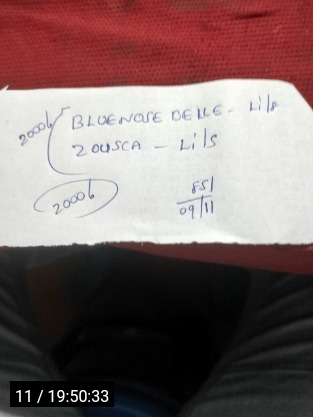 2000b BLUENOSE BELLE - Li/s
ZOUSCA - Li/s
2000b
851
09/11
11 / 19:50:33